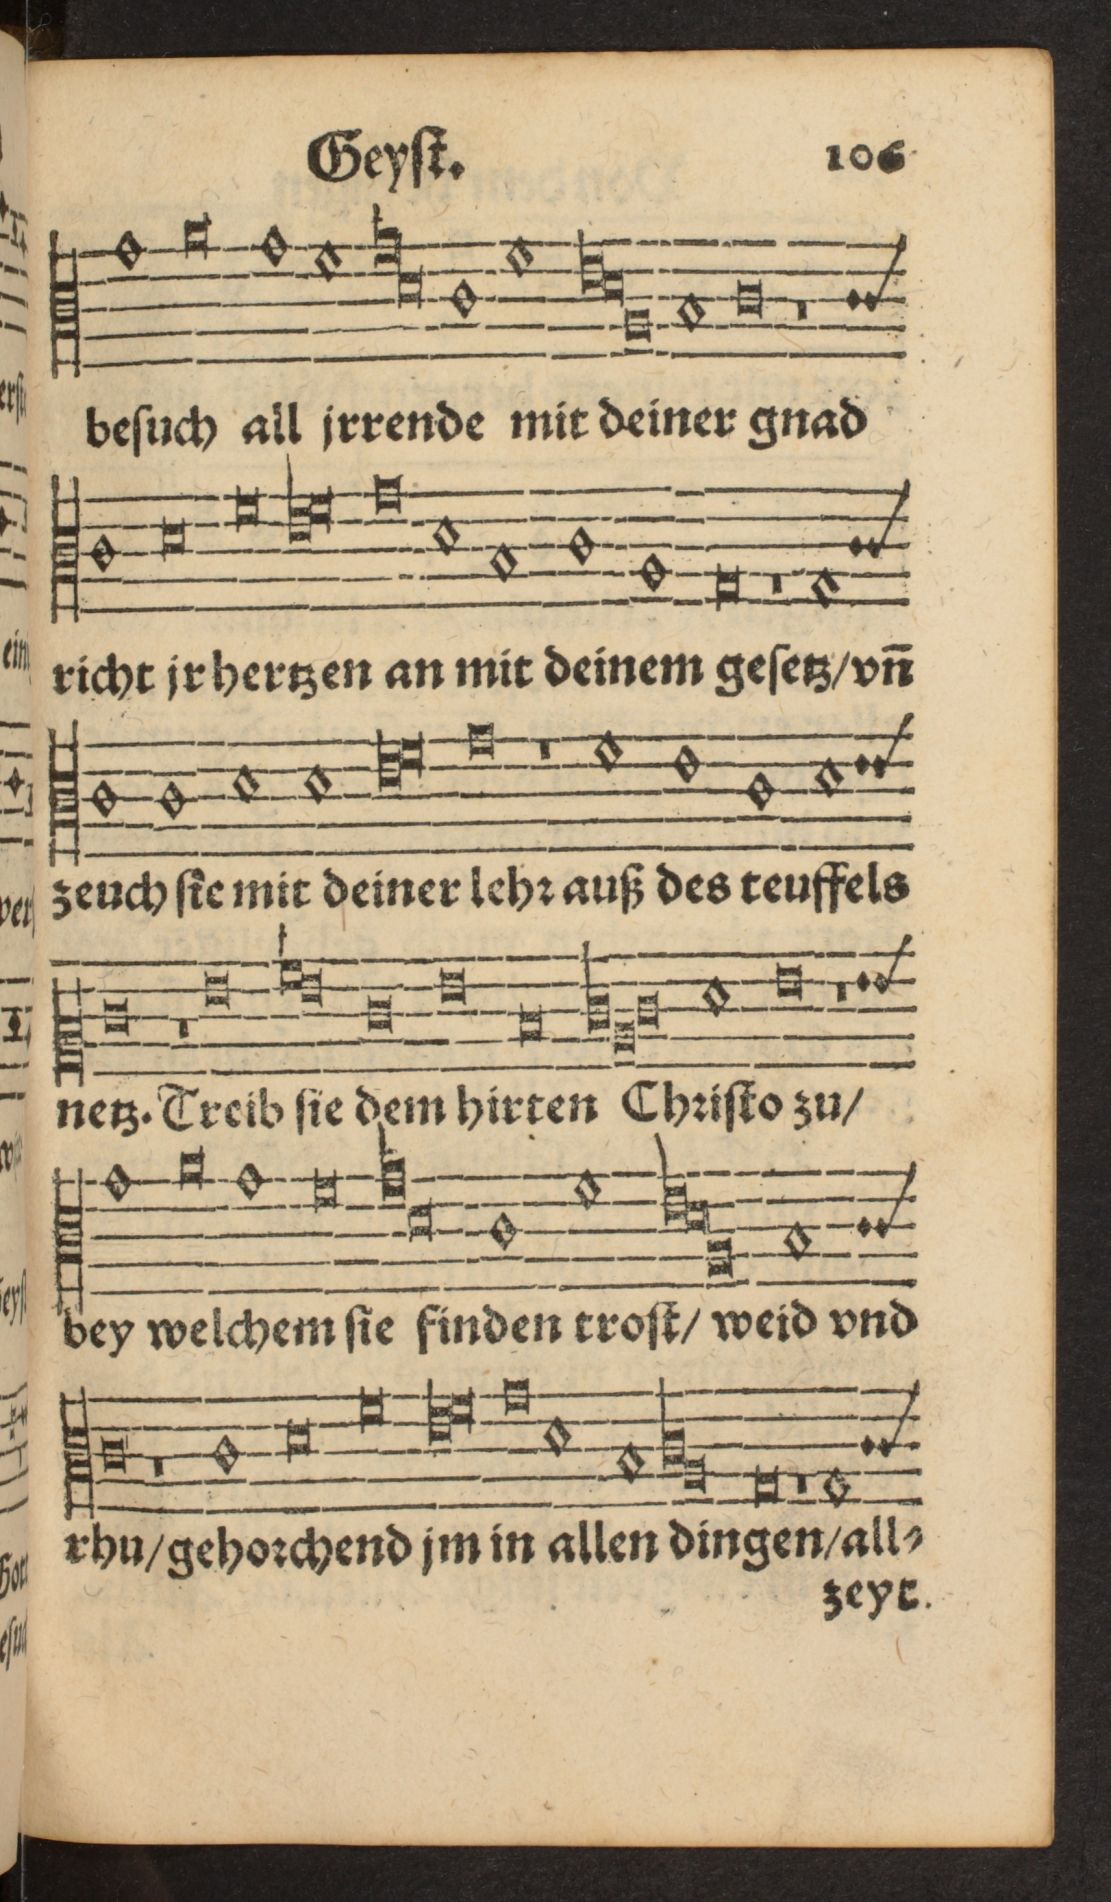 Geyſt.
106
beſuch all jrrende mit deiner gnad
richt jr hertzen an mit deinem geſetz/ vñ
zeuch ſie mit deiner lehꝛ auß des teuffels
netz. Treib ſie dem hirten Chꝛiſto zu/
bey welchem ſie finden troſt/ weid vnd
rhu/ gehoꝛchend jm in allen dingen/ all⸗
zeyt.